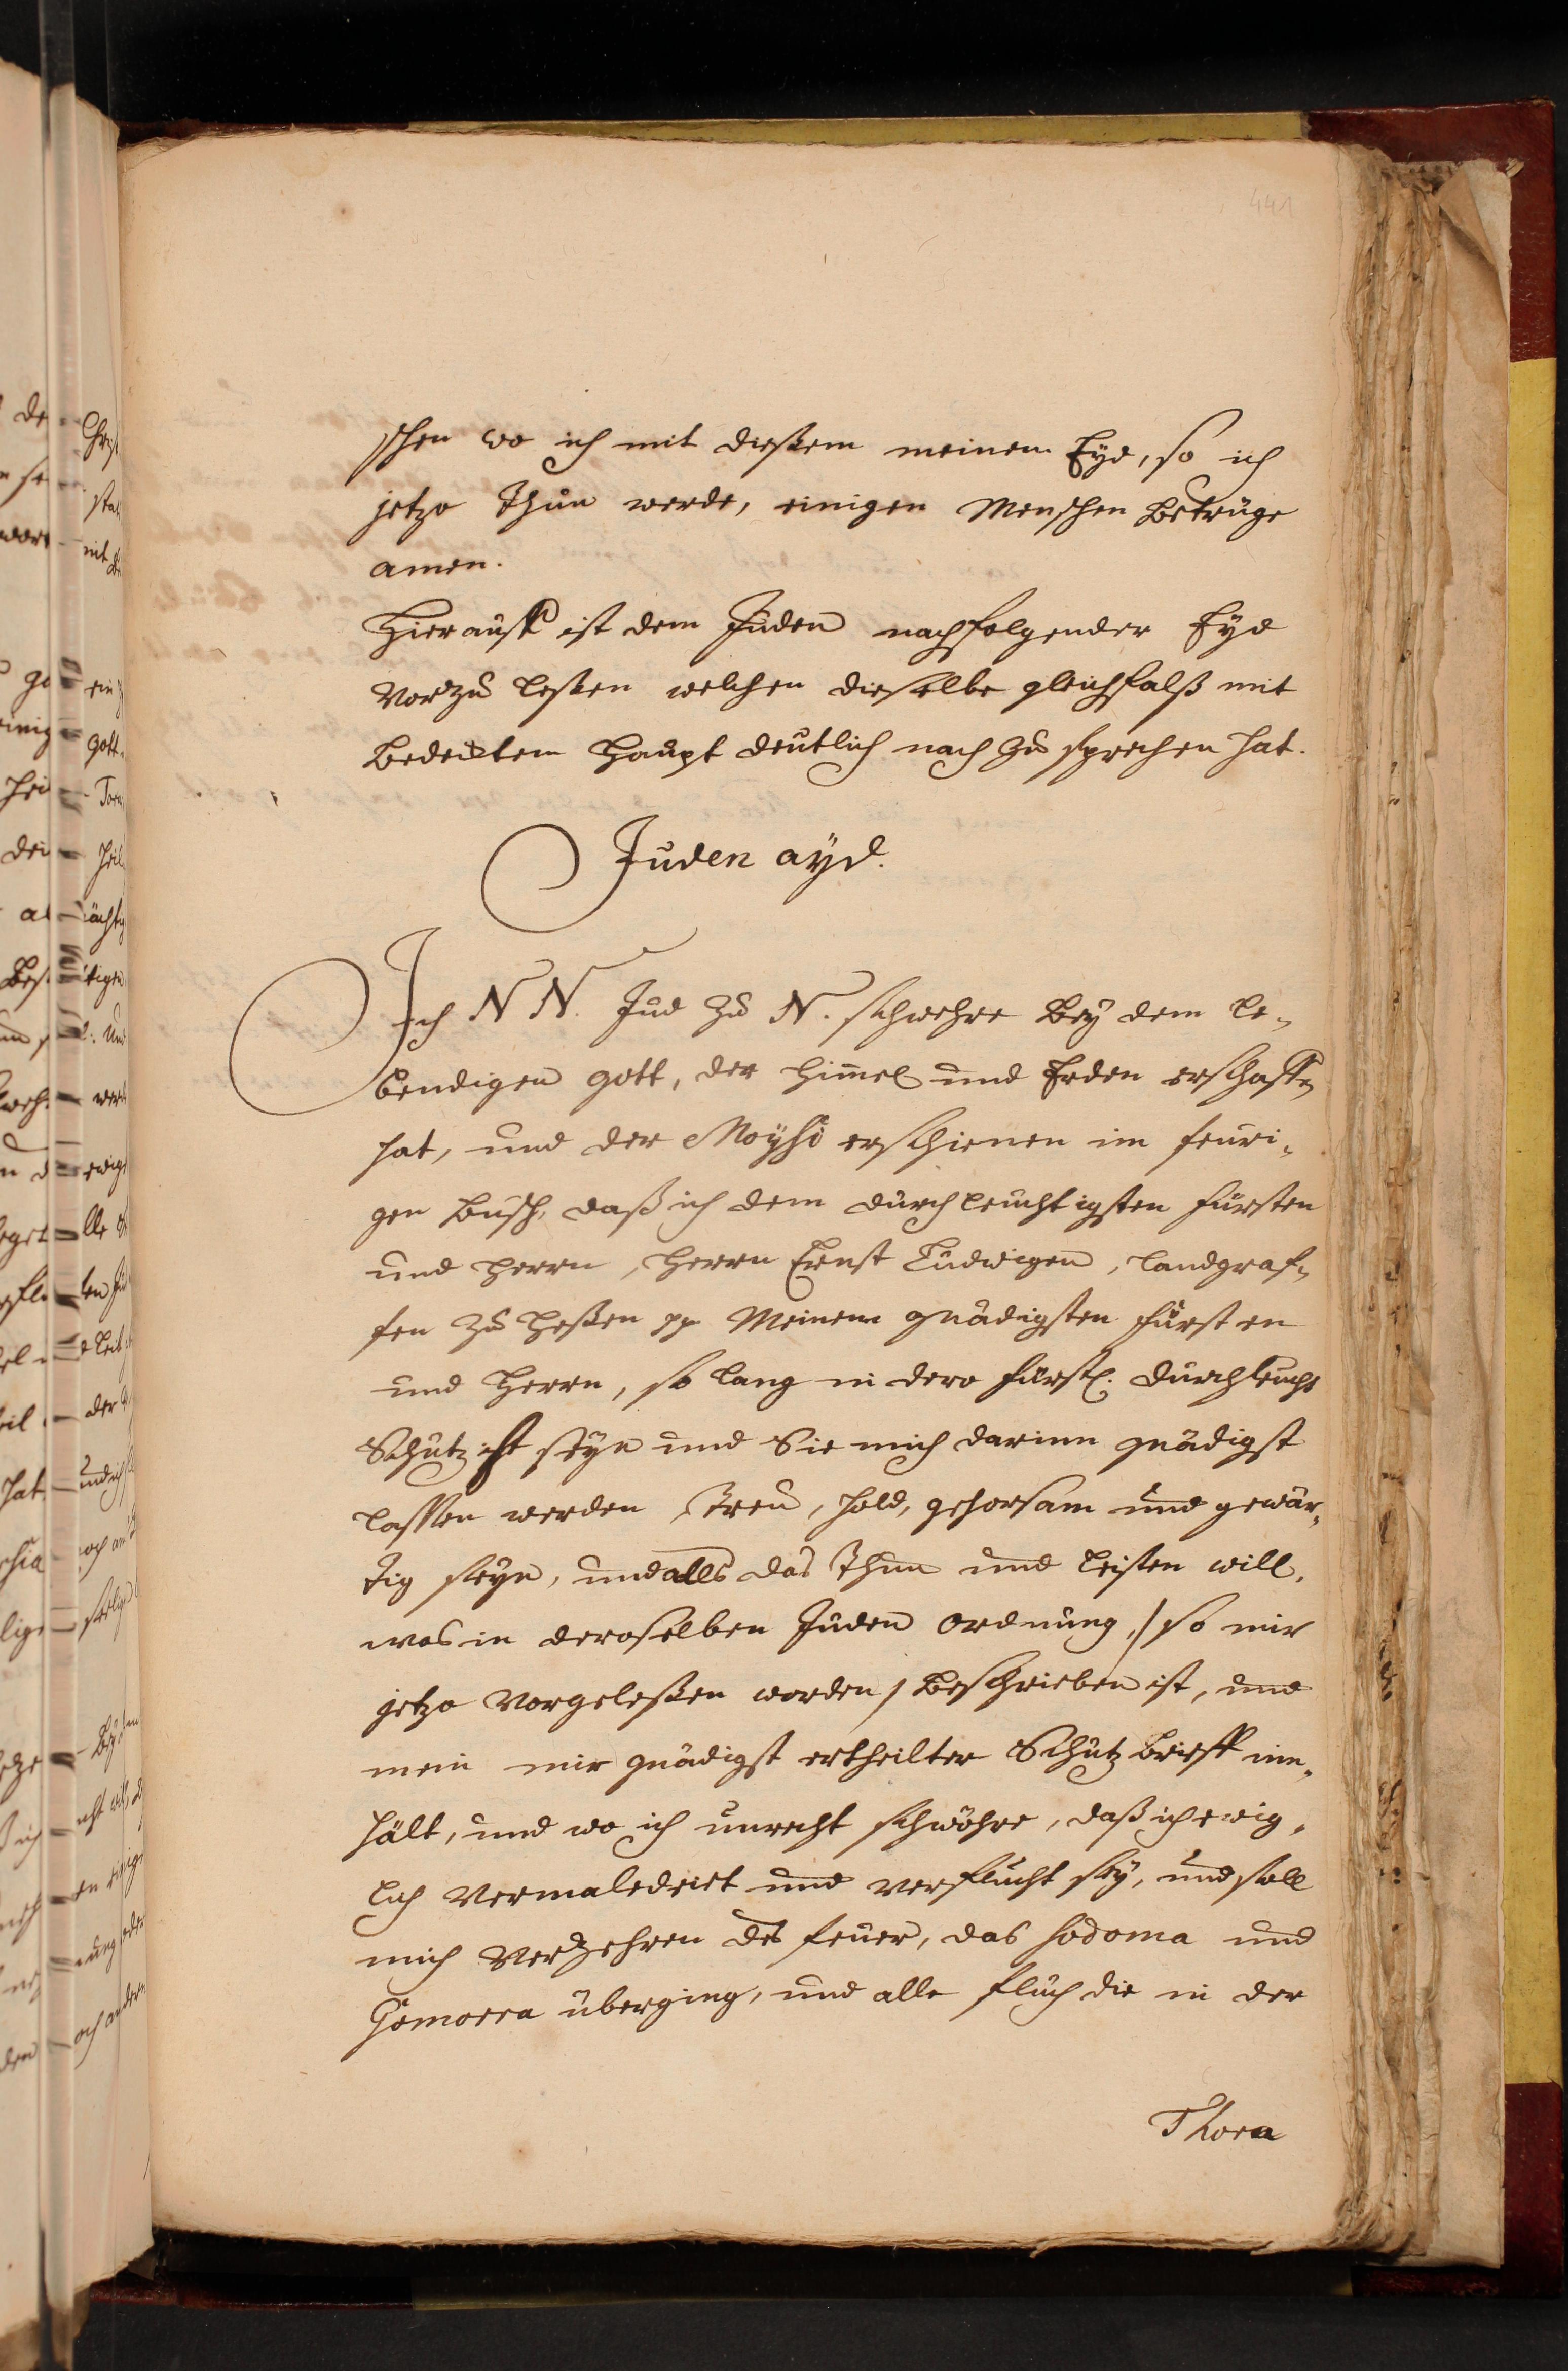 441
schen wo ich mit dießem meinem Eyd, so ich
jetzo Thun werde, einigen Menschen betrüge
amen.
Hierauff ist dem Juden nachfolgender Eyd
vorzu leßen welchen dieselbe gleichfalß mit
bedecktem Haupt deutlich nach zu sprechen hat.
Juden ayd.
Ich N N. Jud zu N. schwehre bey dem le-
bendigen gott, der himmel und Erden erschaffen
hat, und der Moÿsi erschienen im feuri-
gen busch, daß ich dem durchleuchtigsten fürsten
und Herrn, Herrn Ernst Ludwigen, landgraf-
fen zu Heßen pp Meinem gnädigsten fürsten
und Herrn, so lang in dero fürstl. durchleucht
Schutz ich seyn und Sie mich darinn gnädigst
lassen werden Treu, hold, gehorsam und gewär-
tig seyn, und alls das Thun und leisten will,
was in deroselben Juden ordnung, / so mir
jetzo vorgeleßen worden / beschrieben ist, und
mein mir gnädigst ertheilter Schutz brieff inn-
hält, und wo ich unrecht schwöhre, daß ich ewig-
lich vermaledeiet und verflucht sey, und soll
mich verzehren das feuer, das Sodoma und
Gomorra überging, und alle fluch die in der
Thora